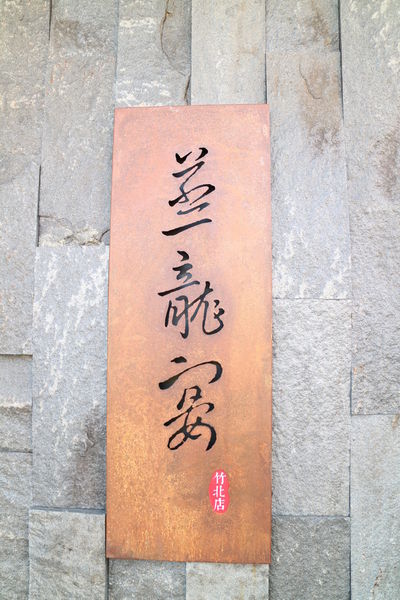 蒸龍宴
竹北店